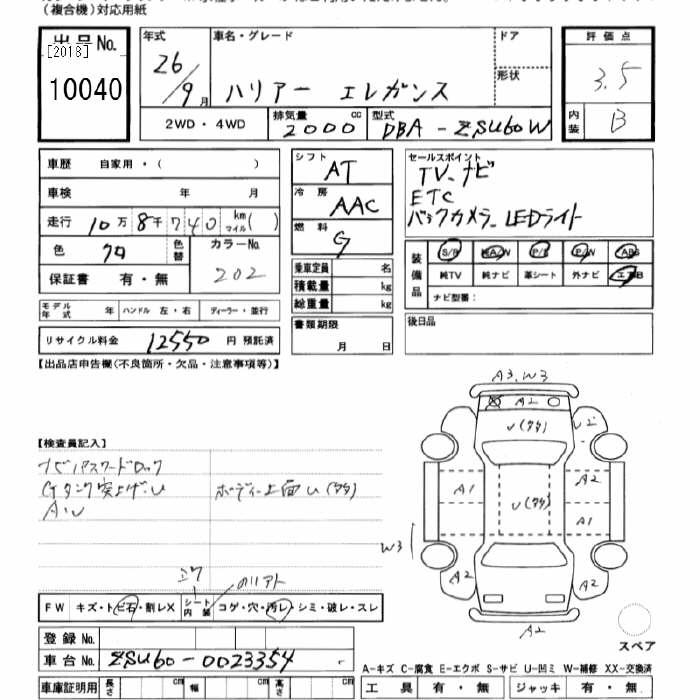 （複合機）対応用紙
出品No.
[2018]
10040
年式 26/9月
車名・グレード ハリアー エレガンス
ドア
形状
評価点 3.5
内装 B
2WD・4WD
排気量 2000 cc
型式 DBA-ZSU60W
車歴 自家用・（ ）
車検 年 月
走行 10万8千740 km マイル( )
色 クロ
色替
カラーNo. 202
保証書 有・無
モデル年式 年
ハンドル 左・右
ディーラー・並行
リサイクル料金 12550 円 預託済
シフト AT
冷房 AAC
燃料 G
乗車定員 名
積載量 kg
総重量 kg
書類期限
月 日
セールスポイント
TV.ナビ
ETC
バックカメラ.LEDライト
装備品
S/R AA/W P/S P/W ABS
純TV 純ナビ 革シート 外ナビ エアB
ナビ型番：
後日品
【出品店申告欄（不良箇所・欠品・注意事項等）】
【検査員記入】
ナビパスワードロック
Gタンク突上げ.U
A.U
ボディー上面U(多多)
A3.W3
A2
U(多多)
U2
A1
A2
U(多多)
A1
W3
A2
A2
A2
スペア
FW キズ・トビ石・割レX
シート内装 コゲ・穴・汚レ・シミ・破レ・スレ
登録No.
車台No. ZSU60-0023354
車庫証明用 長さ cm 幅 cm 高さ cm
A-キズ C-腐食 E-エクボ S-サビ U-凹ミ W-補修 XX-交換済
工具 有・無 ジャッキ 有・無